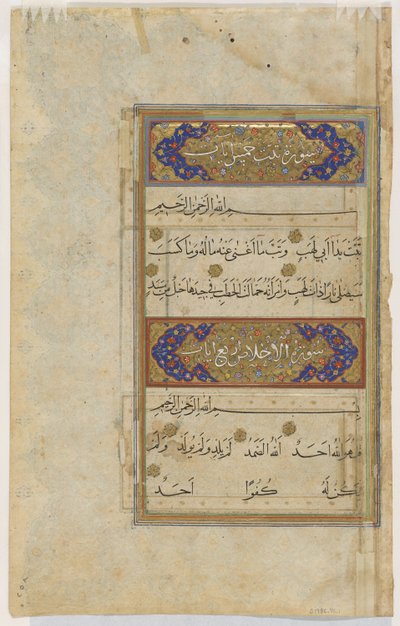 سورة تبت خمس آيات
بسم الله الرحمن الرحيم
تَبَّتْ يَدَا أَبِي لَهَبٍ وَتَبَّ مَا أَغْنَى عَنْهُ مَالُهُ وَمَا كَسَبَ
سَيَصْلَى نَارًا ذَاتَ لَهَبٍ وَامْرَأَتُهُ حَمَّالَةَ الْحَطَبِ فِي جِيدِهَا حَبْلٌ مِنْ مَسَدٍ
سورة الاخلاص اربع ايات
بسم الله الرحمن الرحيم
قُلْ هُوَ اللهُ أَحَدٌ اللهُ الصَّمَدُ لَمْ يَلِدْ وَلَمْ يُولَدْ وَلَمْ
يَكُنْ لَهُ كُفُوًا أَحَدٌ